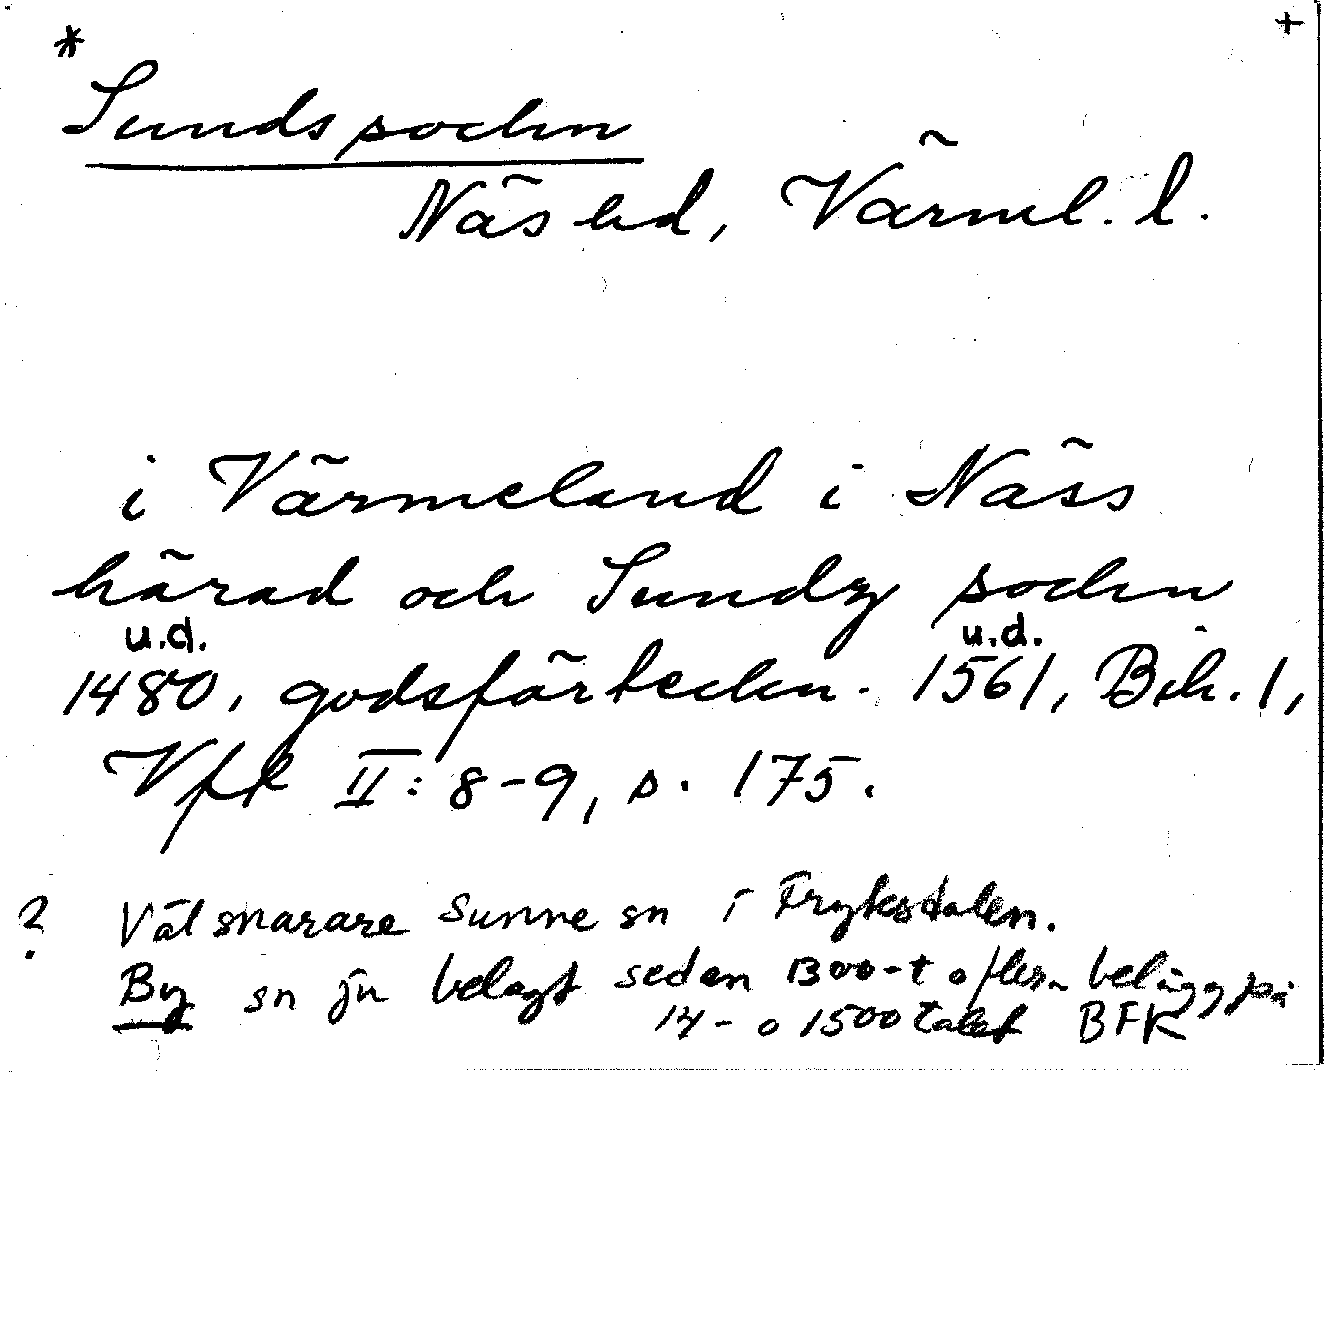 * +
Sundssochn
Näs hd, Värml. l.
i Värmeland i Näss
härad och Sundz sochn
u.d. u.d.
1480, godsförteckn. 1561, Bih. 1,
Vfk II: 8-9, s. 175.
? Väl snarare Sunne sn i Fryksdalen.
By sn ju belagt sedan 1300-t o flera belägg på
14- o 1500 talet BFK